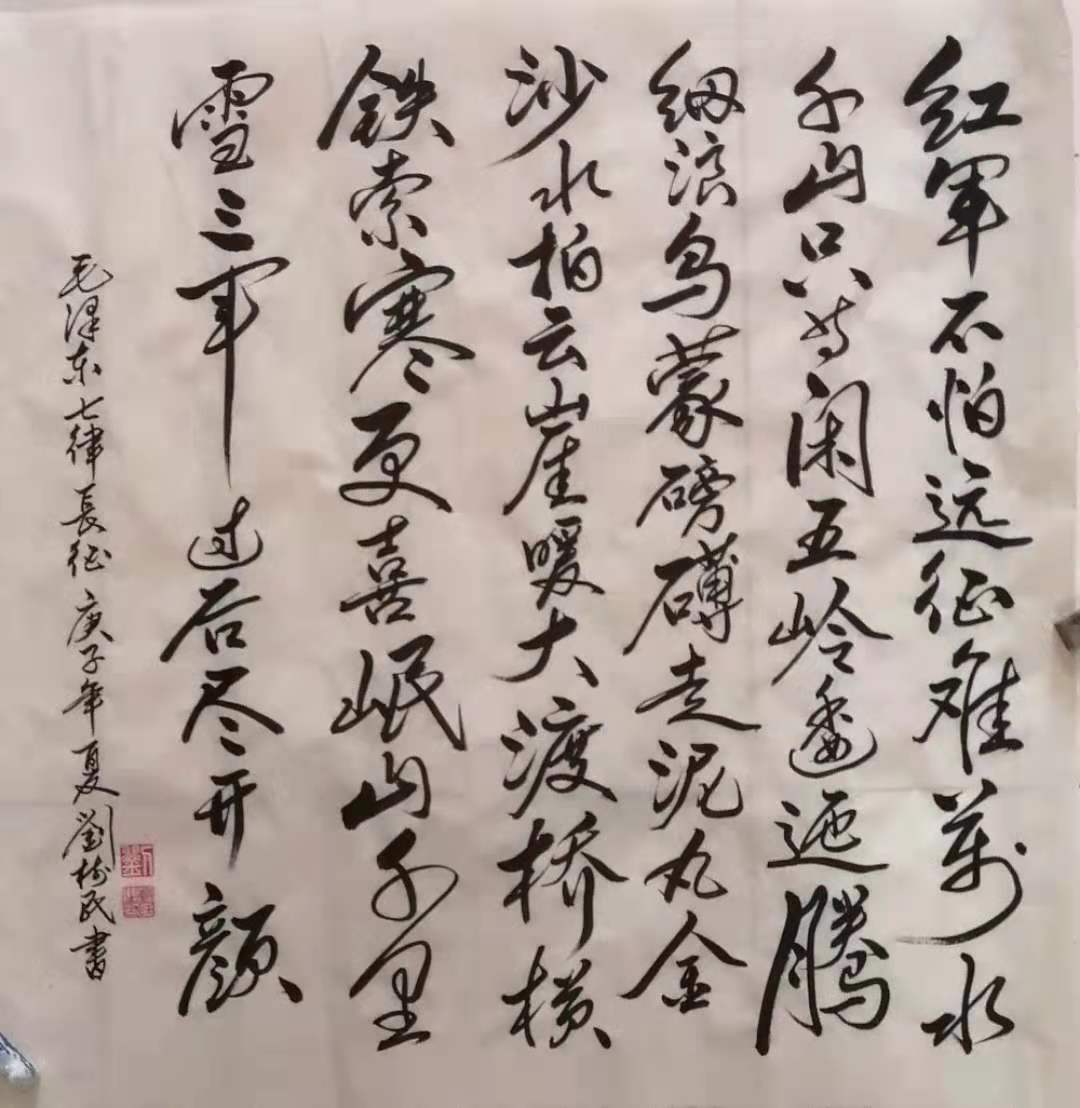 红军不怕远征难万水
千山只等闲五岭逶迤腾
细浪乌蒙磅礴走泥丸金
沙水拍云崖暖大渡桥横
铁索寒更喜岷山千里
雪三军过后尽开颜
毛泽东七律長征庚子年夏劉樹民書